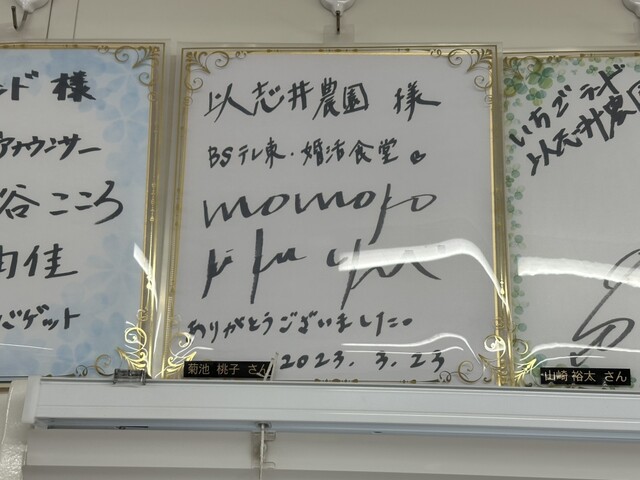 ド様
アナウンサー
谷こころ
由佳
バゲット
以志井農園 様
BSテレ東・婚活食堂
momoko
Kikuchi
ありがとうございました。
2023.3.23
菊池 桃子 さん
いちごランド
以志井農園
山崎 裕太 さん